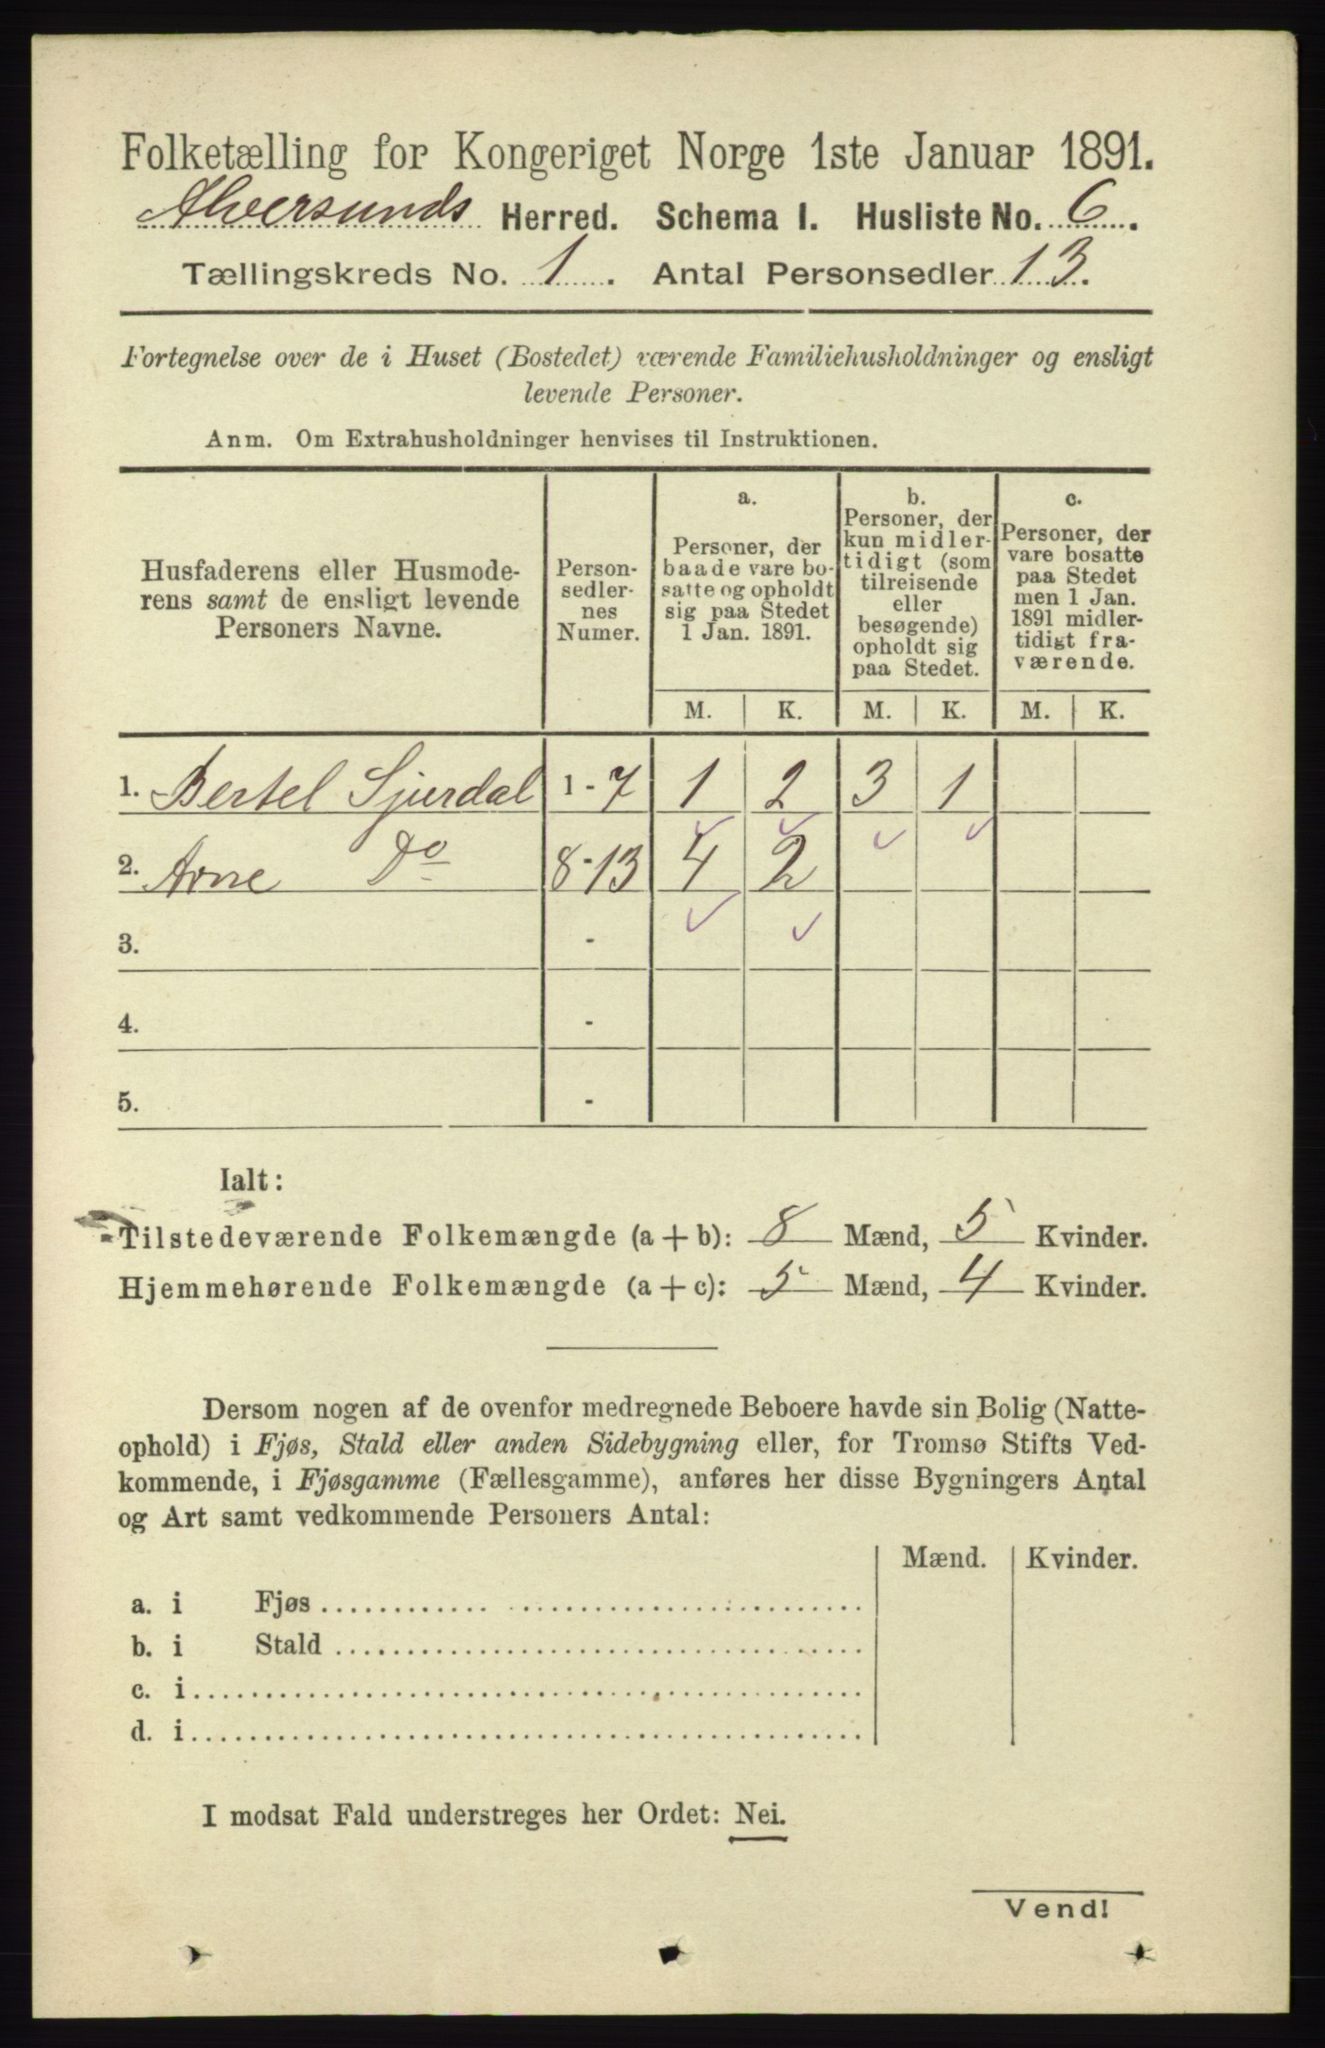 Folketælling for Kongeriget Norge 1ste Januar 1891.
Alversunds Herred. Schema I. Husliste No. 6.
Tællingskreds No. 1. Antal Personsedler 13.
Fortegnelse over de i Huset (Bostedet) værende Familiehusholdninger og ensligt
levende Personer.
Anm. Om Extrahusholdninger henvises til Instruktionen.
Husfaderens eller Husmode-
rens samt de ensligt levende
Personers Navne.
Person-
sedler-
nes
Numer.
a.
Personer, der
baade vare bo-
satte og opholdt
sig paa Stedet
1 Jan. 1891.
b.
Personer, der
kun midler-
tidigt (som
tilreisende
eller
besøgende)
opholdt sig
paa Stedet.
c.
Personer, der
vare bosatte
paa Stedet
men 1 Jan.
1891 midler-
tidigt fra-
værende.
M. K. M. K. M. K.
1. Bertel Sjurdal 1-7 1 2 3 1
2. Arne Do 8-13 4 2
3. -
4. -
5. -
Ialt:
Tilstedeværende Folkemængde (a+b): 8 Mænd, 5 Kvinder.
Hjemmehørende Folkemængde (a+c): 5 Mænd, 4 Kvinder.
Dersom nogen af de ovenfor medregnede Beboere havde sin Bolig (Natte-
ophold) i Fjøs, Stald eller anden Sidebygning eller, for Tromsø Stifts Ved-
kommende, i Fjøsgamme (Fællesgamme), anføres her disse Bygningers Antal
og Art samt vedkommende Personers Antal:
Mænd. Kvinder.
a. i Fjøs
b. i Stald
c. i
d. i
I modsat Fald understreges her Ordet: Nei.
Vend!